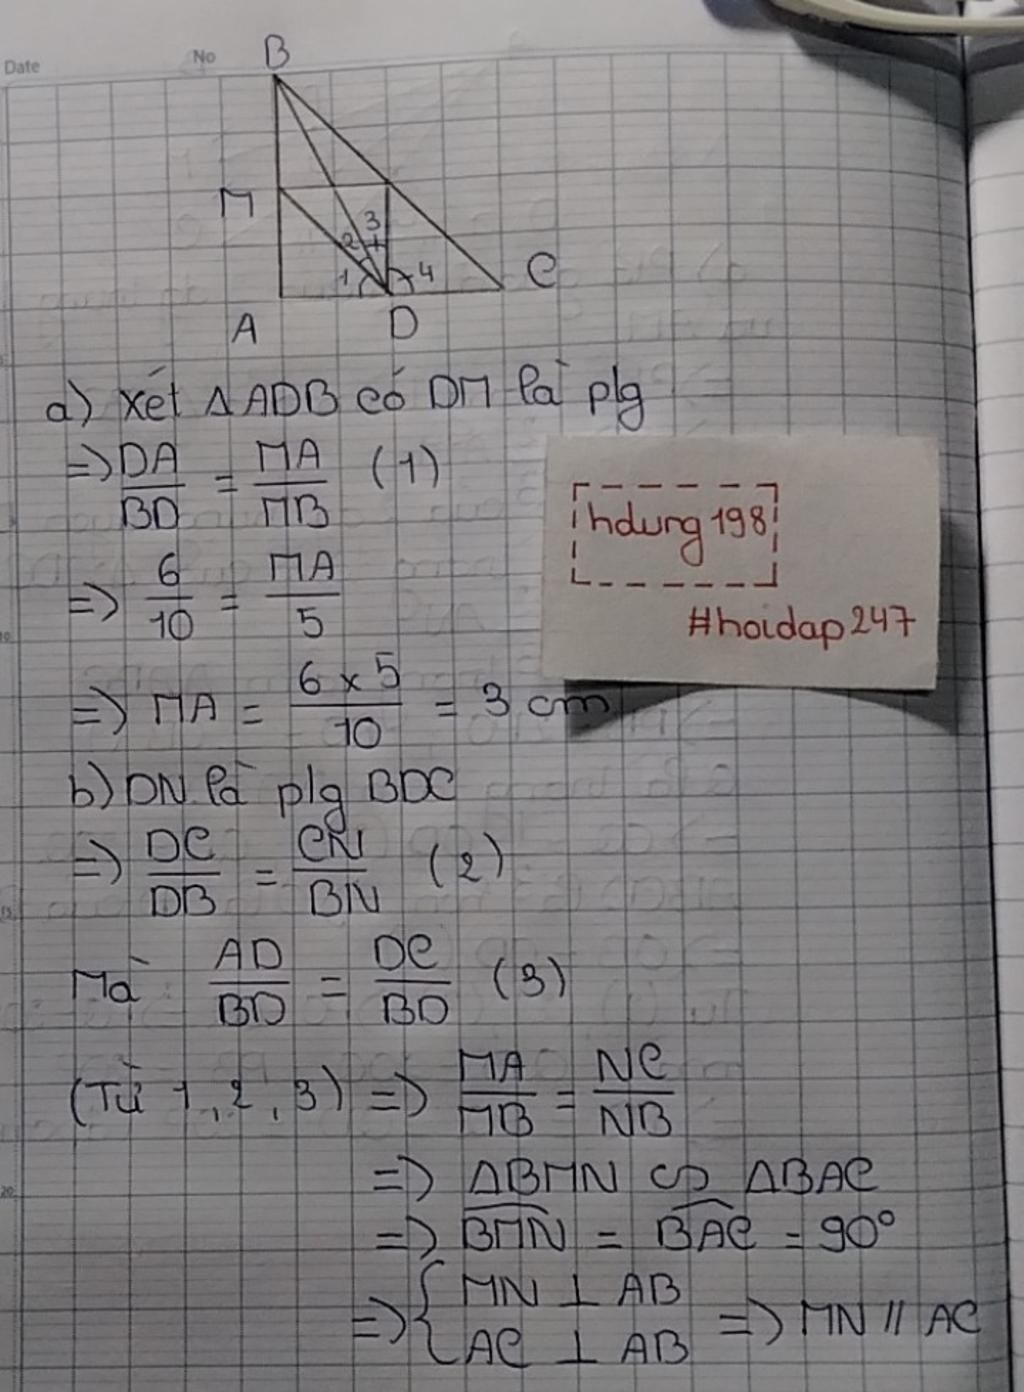 Date No
B
M
3
2
1 4
C
A D
a) Xét ΔADB có DM là plg
=> DA/BD = MA/MB (1)
=> 6/10 = MA/5
=> MA = 6 x 5/10 = 3 cm
hdung198
#hoidap247
b) DN là plg BDC
=> DC/DB = CN/BN (2)
Mà AD/BD = DC/BD (3)
(Từ 1, 2, 3) => MA/MB = NC/NB
=> ΔBMN ∽ ΔBAC
=> BMN = BAC = 90°
=> { MN ⊥ AB
AC ⊥ AB => MN // AC